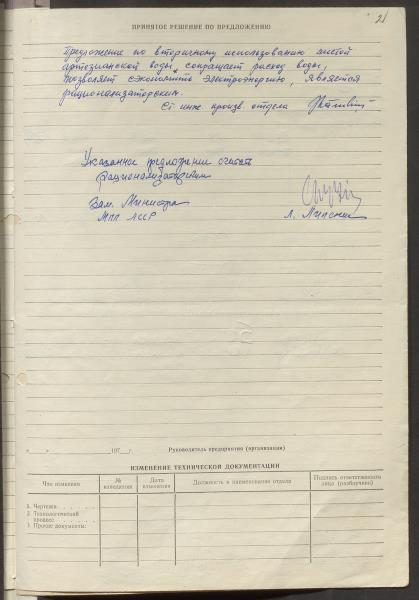 21
ПРИНЯТОЕ РЕШЕНИЕ ПО ПРЕДЛОЖЕНИЮ
Предложение по вторичному использованию чистой
артезианской воды, сокращает расход воды,
позволяет сэкономить электроэнергию, является
рационализаторским.
Ст инж. произв. отдела
Указанное предложение считать
рационализаторским
Зам. Министра
МПП АССР
Л.
« » 197 г.
Руководитель предприятия (организации)
ИЗМЕНЕНИЕ ТЕХНИЧЕСКОЙ ДОКУМЕНТАЦИИ
Что изменено
№ извещения
Дата изменения
Должность и наименование отдела
Подпись ответственного лица (разборчиво)
1. Чертежи
2. Технологический
процесс
3. Прочие документы: